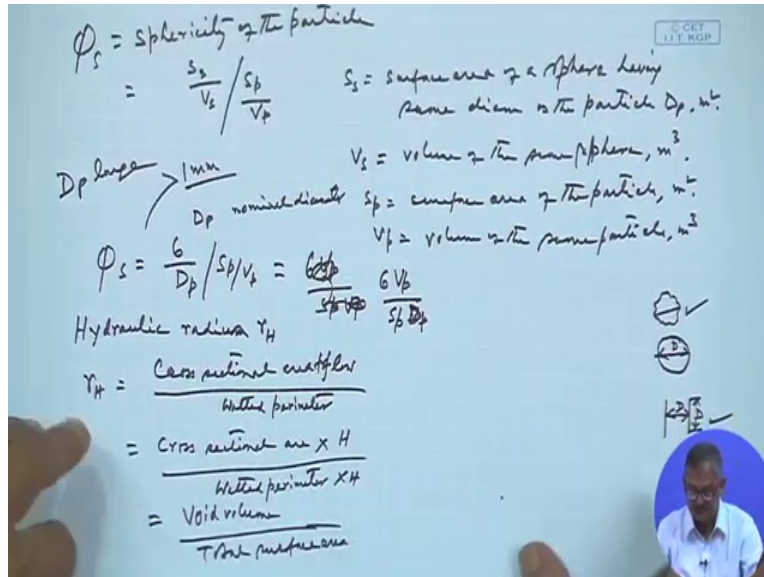 © CET
I.I.T. KGP
φs = Sphericity of the particle
= Ss/Vs / Sp/Vp
Ss = surface area of a sphere having
same diam as the particle Dp, m².
Vs = volume of the same sphere, m³.
Sp = surface area of the particle, m².
Vp = volume of the same particle, m³
Dp large > 1mm
Dp nominal diameter
φs = 6/Dp / Sp/Vp = 6Vp/SpDp
Hydraulic radius rH
rH = Cross sectional area of flow / Wetted perimeter
= Cross sectional are × H / Wetted perimeter × H
= Void volume / Total surface area
D
D
D